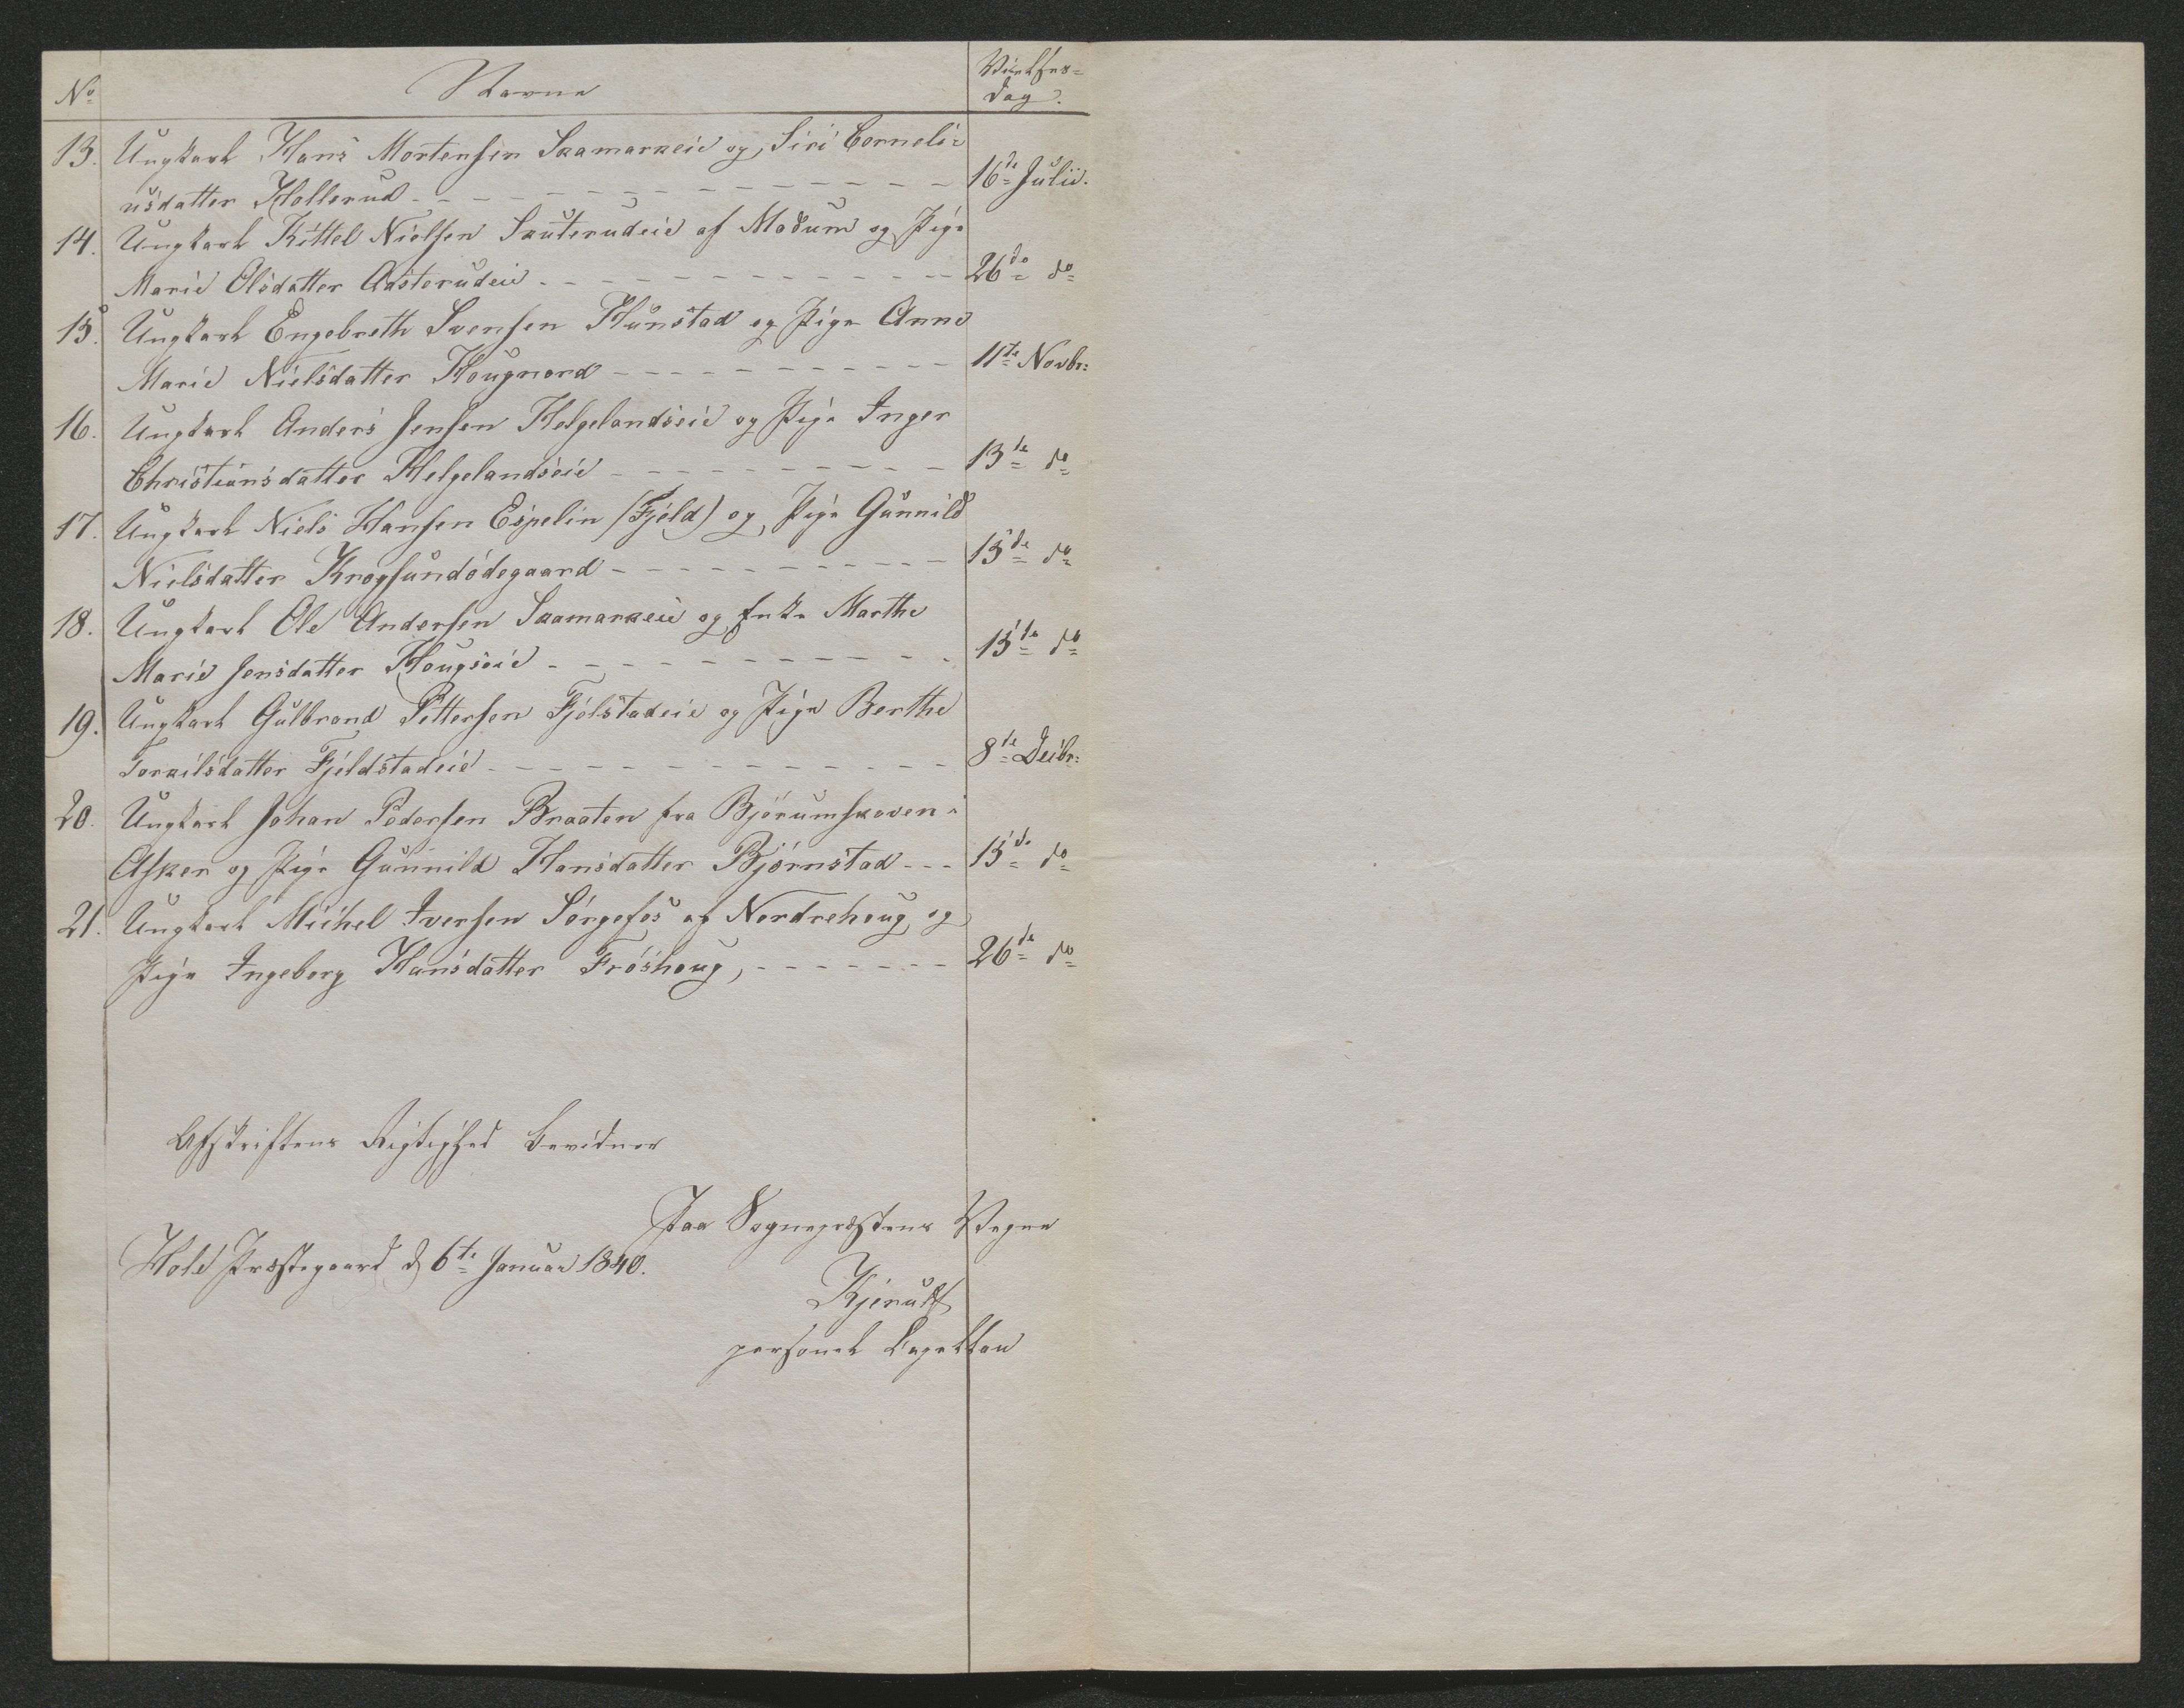 No Navne Vielses-
dag.
13. Ungkarl Hans Mortensen Skamarkeie og Siri Corneli-
usdatter Hollerud 16de Julii.
14. Ungkarl Kittel Nielsen Skuterudeie af Modum og Pige
Marie Olsdatter Aasterudeie 26de do
15. Ungkarl Engebreth Svensen Hunstad og Pige Anne
Marie Nielsdatter Hougnord 11te Novbr:
16. Ungkarl Anders Jensen Helgelandseie og Pige Inger
Christiansdatter Helgelandseie 13de do
17. Ungkarl Niels Hansen Espelin (Fjeld) og Pige Gunnild
Nielsdatter Krogsundødegaard 15de do
18. Ungkarl Ole Andersen Skamarkeie og Enke Marthe
Marie Jensdatter Hougseie 15de do
19. Ungkarl Gulbrand Pettersen Fjelstadeie og Pige Berthe
Torkilsdatter Fjeldstadeie 8de Decbr:
20. Ungkarl Johan Pedersen Braaten fra Bjørumskoven i
Asker og Pige Gunnild Hansdatter Bjørnstad 15de do
21. Ungkarl Michel Iversen Sørgefos af Norderhoug og
Pige Ingeborg Hansdatter Frøshoug, 26de do
Afskriftens Rigtighed bevidner
Paa Sognepræstens Vegne
Hole Præstegaard d 6te Januar 1840.
Kjerulf
personel Capellan